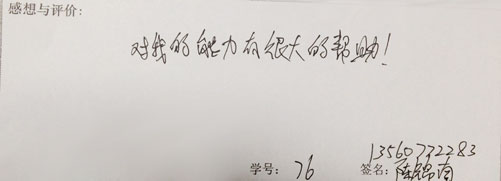 感想与评价:
对我的能力有很大的帮助!
13560772283
学号: 76 签名: 陈强南